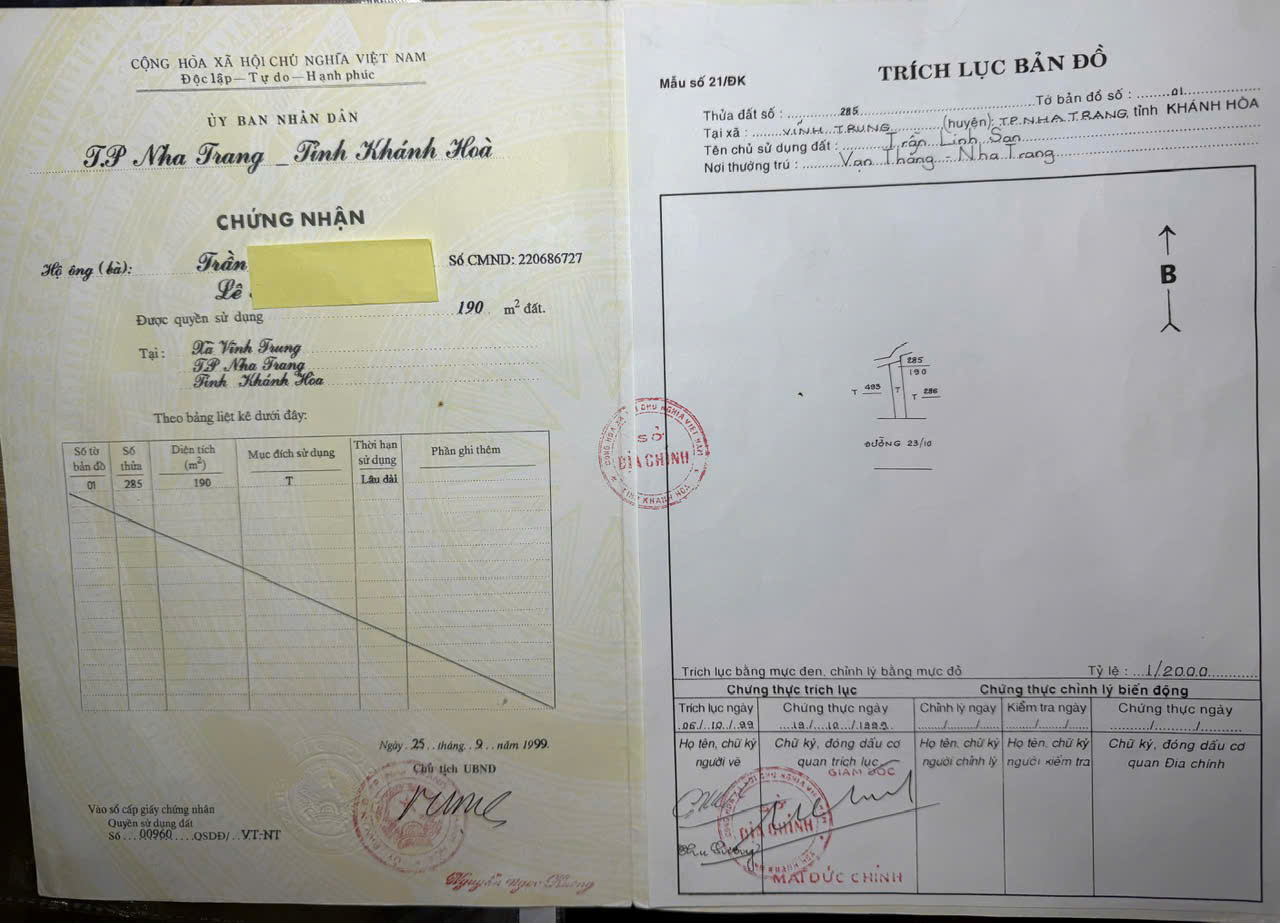 CỘNG HÒA XÃ HỘI CHỦ NGHĨA VIỆT NAM
Độc lập – Tự do – Hạnh phúc
ỦY BAN NHÂN DÂN
T.P Nha Trang _ Tỉnh Khánh Hoà
CHỨNG NHẬN
Hộ ông (bà): Trần Số CMND: 220686727
Lê
Được quyền sử dụng 190 m² đất.
Tại : Xã Vĩnh Trung
TP Nha Trang
Tỉnh Khánh Hòa
Theo bảng liệt kê dưới đây:
Số tờ bản đồ Số thửa Diện tích (m²) Mục đích sử dụng Thời hạn sử dụng Phần ghi thêm
01 285 190 T Lâu dài
Ngày 25 tháng 9 năm 1999.
Chủ tịch UBND
Vào sổ cấp giấy chứng nhận
Quyền sử dụng đất
Số 00960 QSDĐ/ VT-NT
Mẫu số 21/ĐK
TRÍCH LỤC BẢN ĐỒ
Thửa đất số : 285 Tờ bản đồ số : 01
Tại xã : VĨNH TRUNG (huyện): T.P. NHA TRANG, tỉnh KHÁNH HÒA
Tên chủ sử dụng đất : Trần Linh San
Nơi thường trú : Vạn Thắng - Nha Trang
B
285
190
T 493 T T 286
ĐƯỜNG 23/10
SỞ
ĐỊA CHÍNH
TỈNH KHÁNH HÒA
Trích lục bằng mực đen, chỉnh lý bằng mực đỏ Tỷ lệ : 1/2000
Chứng thực trích lục Chứng thực chỉnh lý biến động
Trích lục ngày Chứng thực ngày Chỉnh lý ngày Kiểm tra ngày Chứng thực ngày
06/10/99 19/10/1999 / / / / / /
Họ tên, chữ ký người vẽ Chữ ký, đóng dấu cơ quan trích lục Họ tên, chữ ký người chỉnh lý Họ tên, chữ ký người kiểm tra Chữ ký, đóng dấu cơ quan Địa chính
GIÁM ĐỐC
ĐỊA CHÍNH
MAI ĐỨC CHÍNH